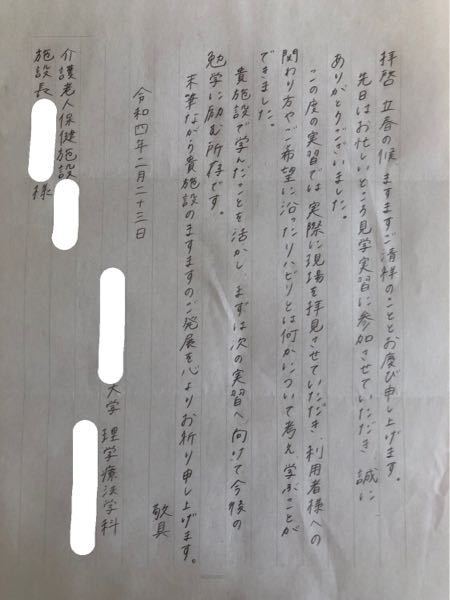 拝啓 立春の候 ますますご清祥のこととお慶び申し上げます。
先日はお忙しいところ見学実習に参加させていただき、誠に
ありがとうございました。
この度の実習では、実際に現場を拝見させていただき、利用者様への
関わり方やご希望に沿ったリハビリとは何かについて考え学ぶことが
できました。
貴施設で学んだことを活かし、まずは次の実習へ向けて今後の
勉学に励む所存です。
末筆ながら貴施設のますますのご発展を心よりお祈り申し上げます。
敬具
令和四年二月二十三日
大学 理学療法学科
介護老人保健施設
施設長 様